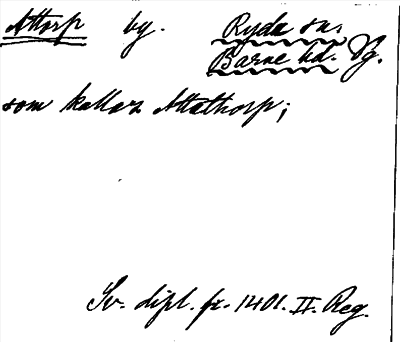 Attorp by. Ryda sn.
Barne hd. Vg.
som kallas Attathorp;
Sv. dipl. fr. 1401. II. Reg.